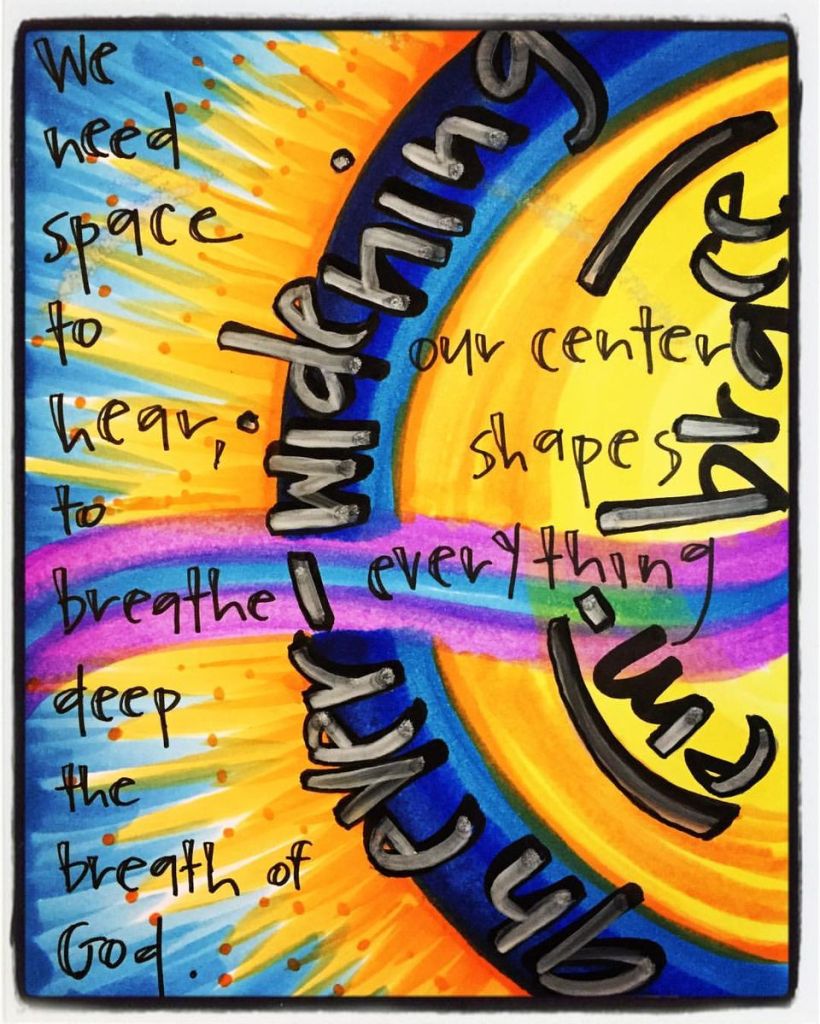 We
need
space
to
hear,
to
breathe
deep
the
breath of
God.
an ever-widening
(em·brace)
our center
shapes
everything